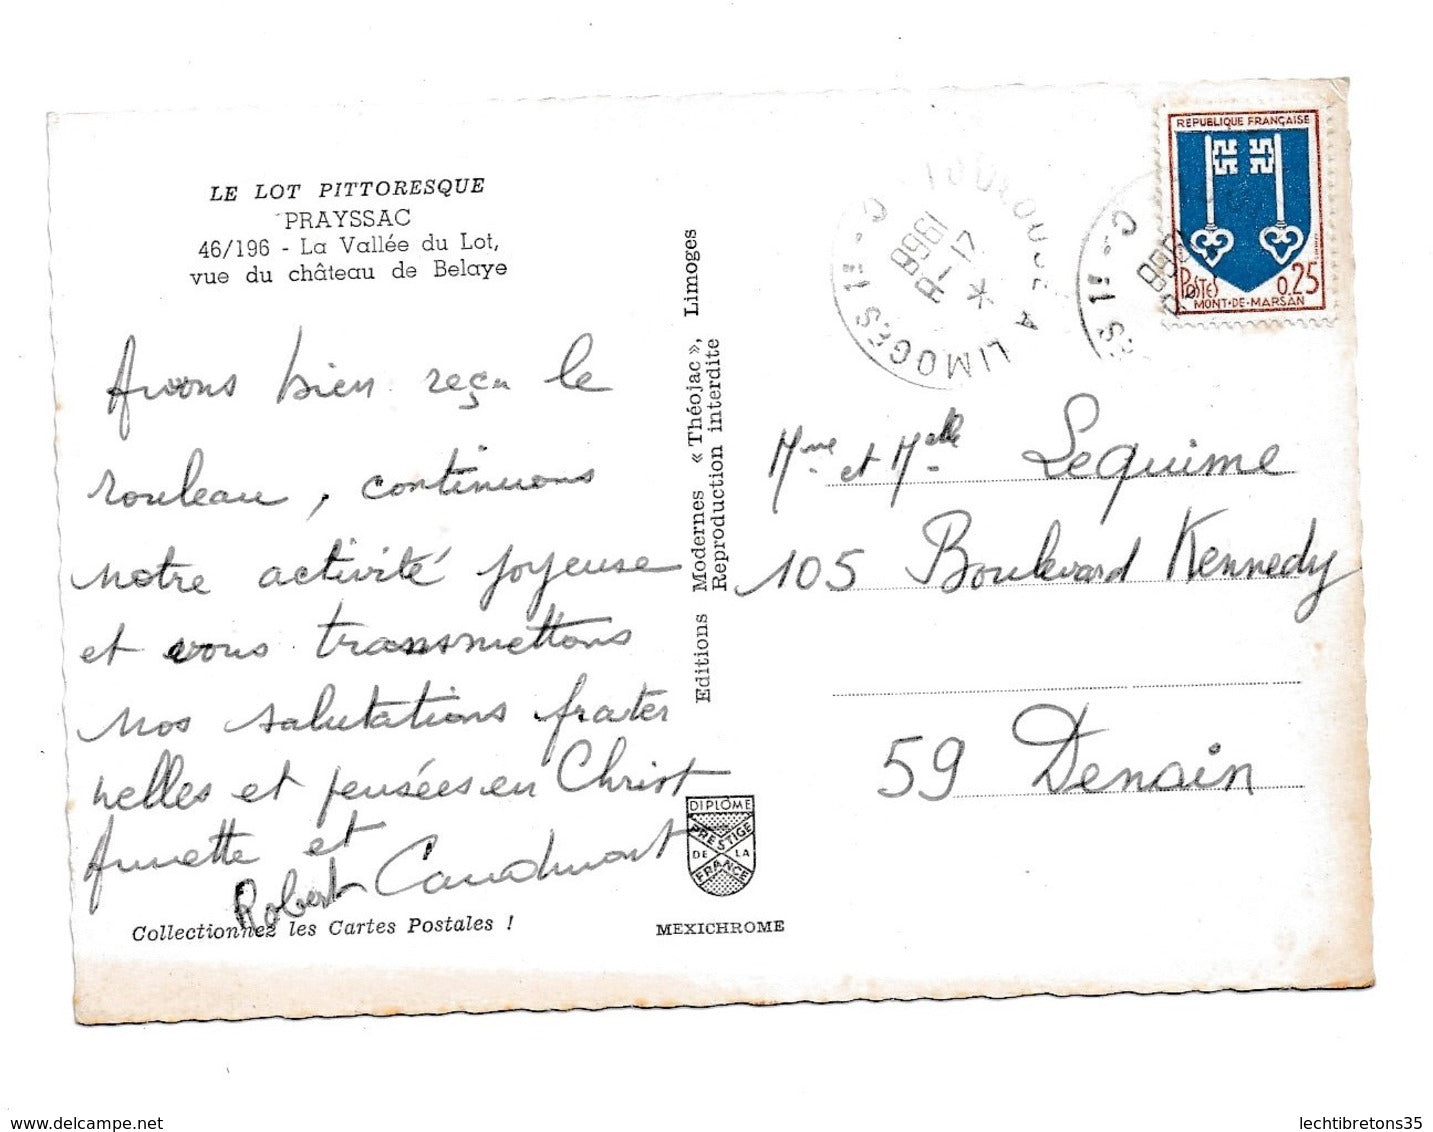 LE LOT PITTORESQUE
PRAYSSAC
46/196 - La Vallée du Lot,
vue du château de Belaye
Avons bien reçu le
rouleau, continuons
notre activité joyeuse
et vous transmettons
nos salutations frater
nelles et pensées en Christ
Annette et
Robert Caudmont
Collectionnez les Cartes Postales !
Editions Modernes « Théojac », Limoges
Reproduction interdite
DIPLÔME
PRESTIGE
DE LA
FRANCE
MEXICHROME
TOULOUSE A LIMOGES 1E
17
1968
REPUBLIQUE FRANÇAISE
POSTES 0,25
MONT-DE-MARSAN
Mme et Melle Lequime
105 Boulevard Kennedy
59 Denain
lechtibretons35